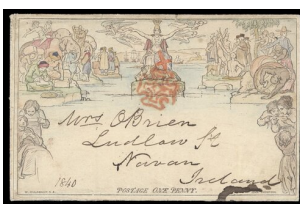 Mrs. O'Brien
Ludlow St
Navan
Ireland
1840
POSTAGE ONE PENNY.